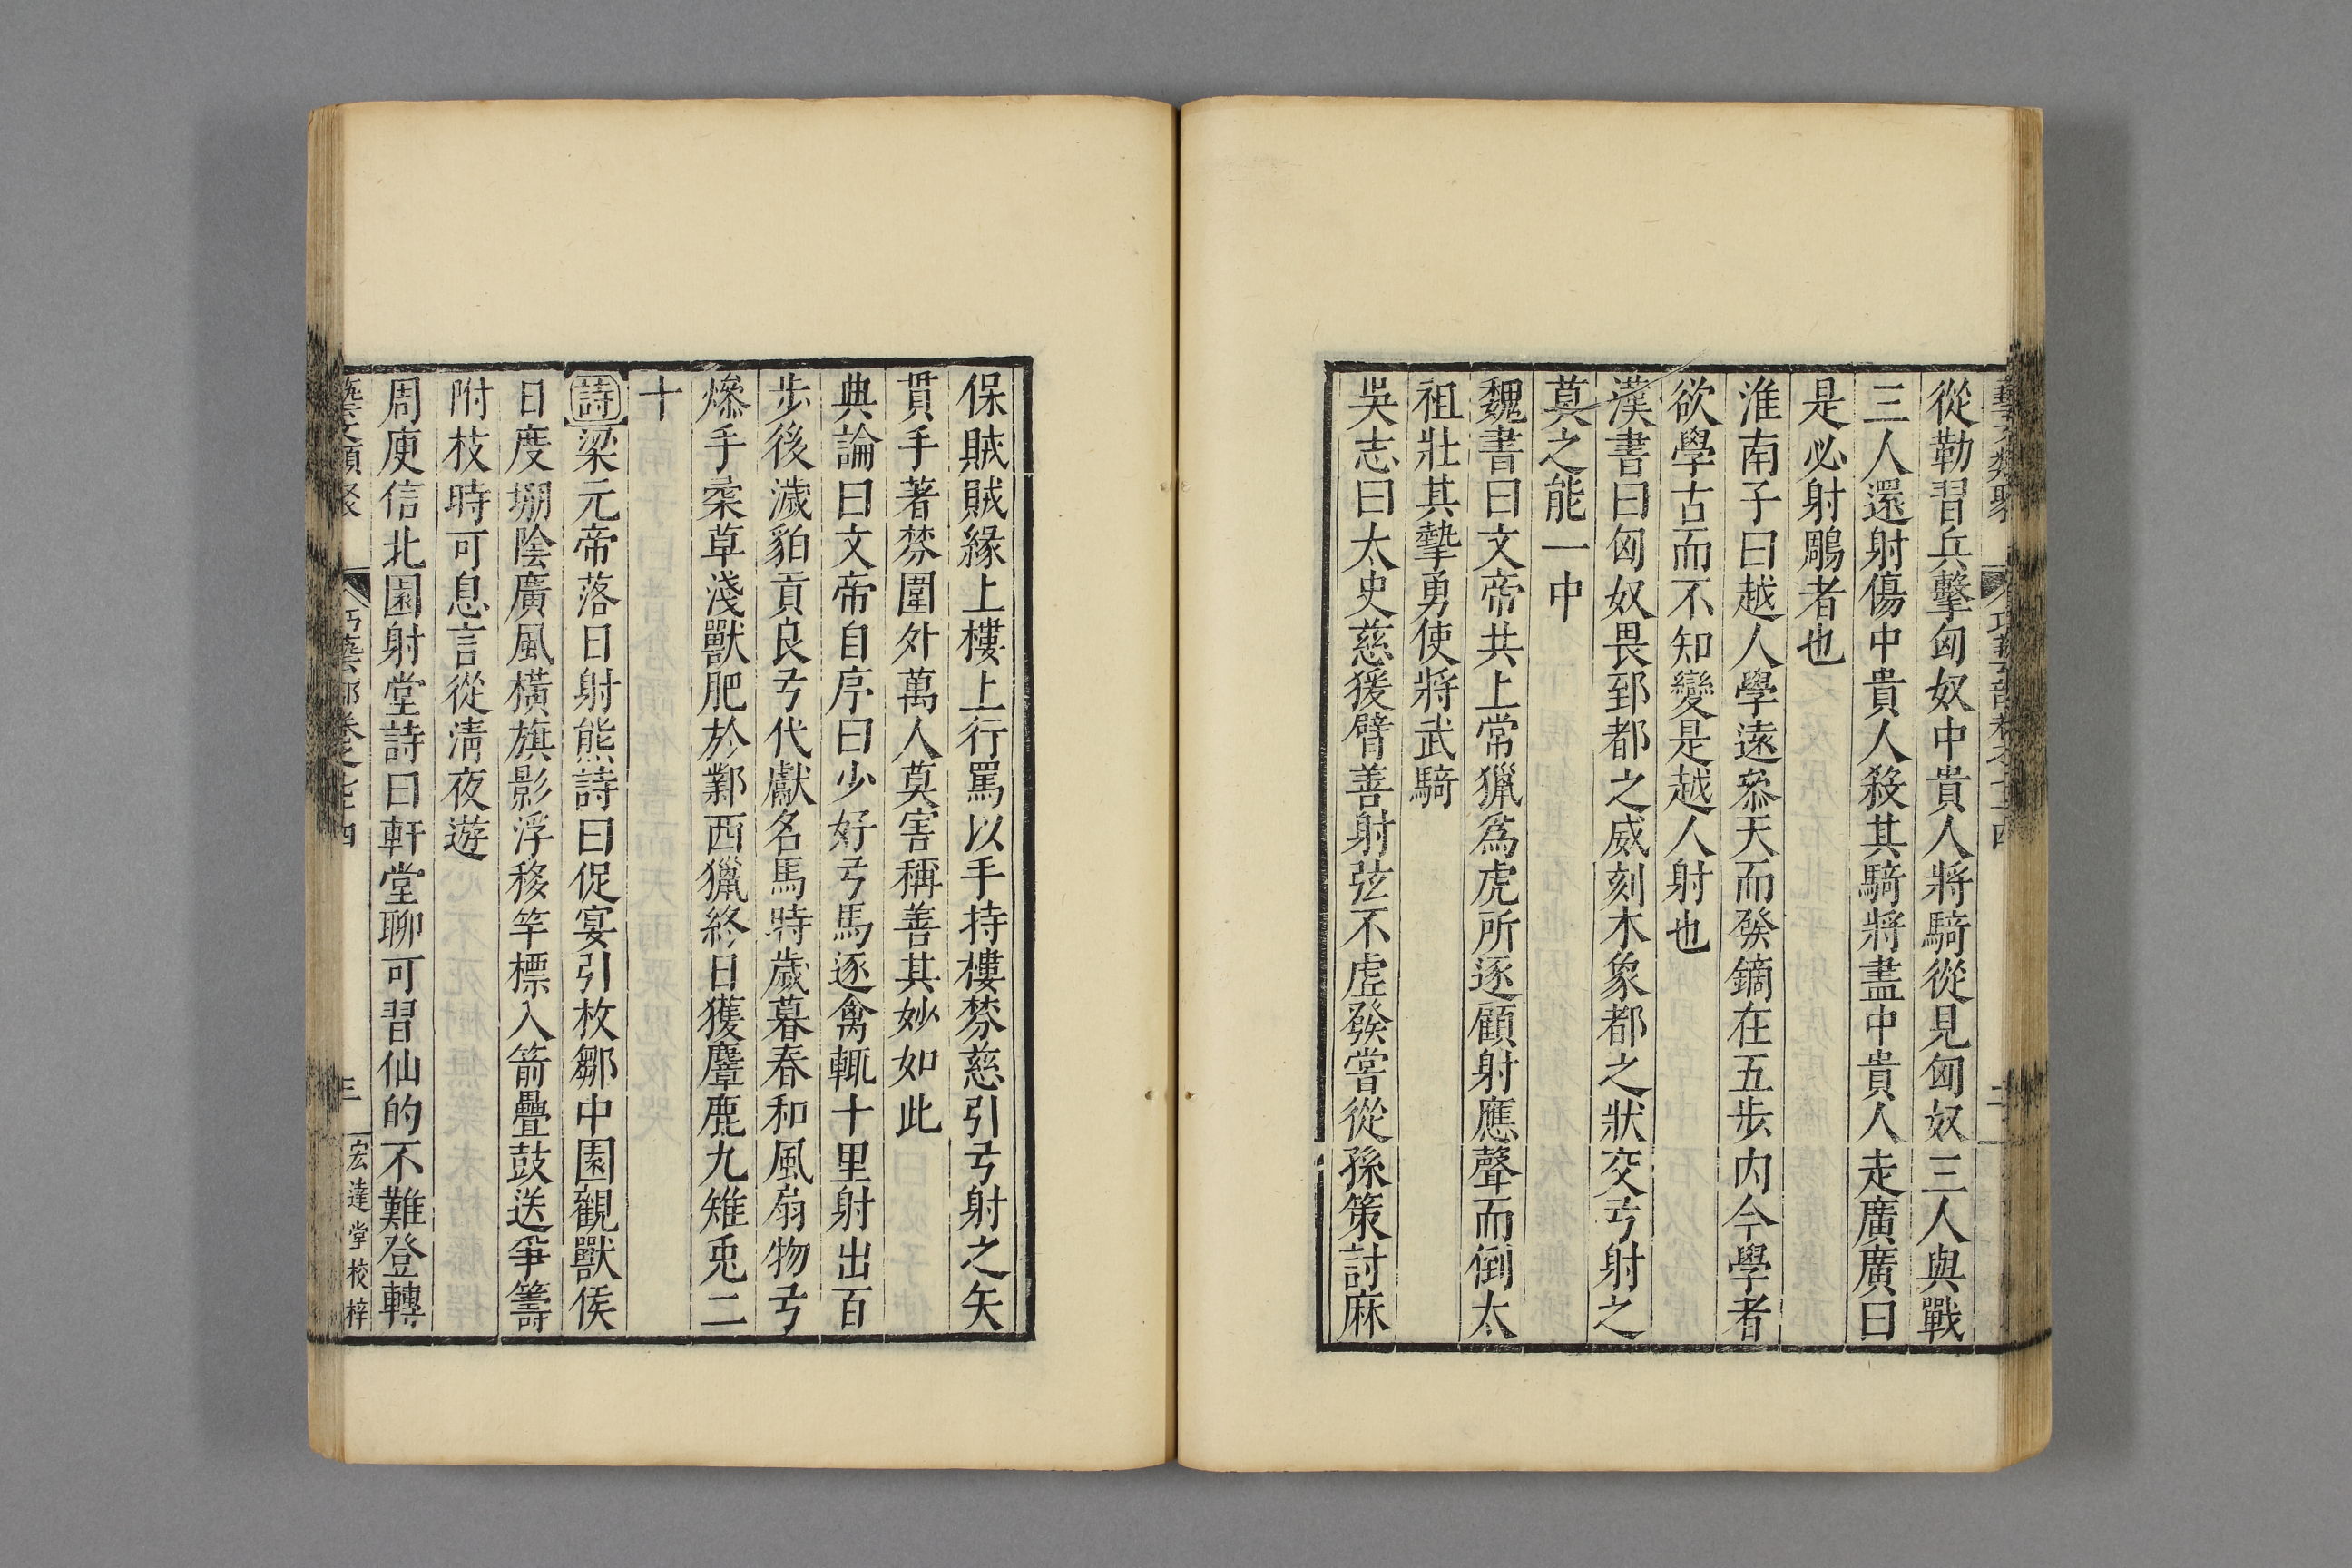 藝文類聚 巧藝部卷之七十四 二
從勒習兵擊匈奴中貴人將騎從見匈奴三人與戰
三人還射傷中貴人殺其騎將盡中貴人走廣廣曰
是必射鵰者也
淮南子曰越人學遠叅天而發鏑在五步内今學者
欲學古而不知變是越人射也
漢書曰匈奴畏郅都之威刻木象都之狀交弓射之
莫之能一中
魏書曰文帝共上常獵爲虎所逐顧射應聲而倒太
祖壯其摯勇使將武騎
吳志曰太史慈猨臂善射弦不虛發嘗從孫策討麻
保賊賊緣上樓上行罵以手持樓棼慈引弓射之矢
貫手著棼圍外萬人莫害稱善其妙如此
典論曰文帝自序曰少好弓馬逐禽輒十里射出百
步後濊貊貢良弓代獻名馬時歲暮春和風扇物弓
燥手柔草淺獸肥於鄴西獵終日獲麞鹿九雉兎二
十
詩梁元帝落日射熊詩曰促宴引枚鄒中園觀獸侯
日度堋陰廣風橫旗影浮移竿標入箭疊鼓送爭籌
附枝時可息言從清夜遊
周庾信北園射堂詩曰軒堂聊可習仙的不難登轉
藝文類聚 巧藝部卷之七十四 三 宏達堂校梓